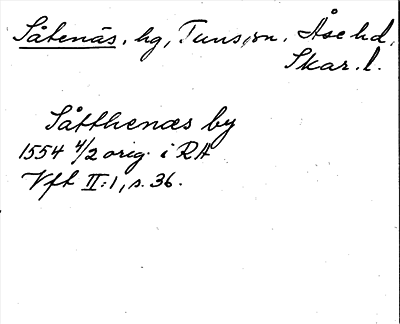 Såtenäs. hg, Tuns sn. Åse hd,
Skar. l.
Såtthenæs by
1554 4/2 orig. i RA
Vft II:1, s. 36.